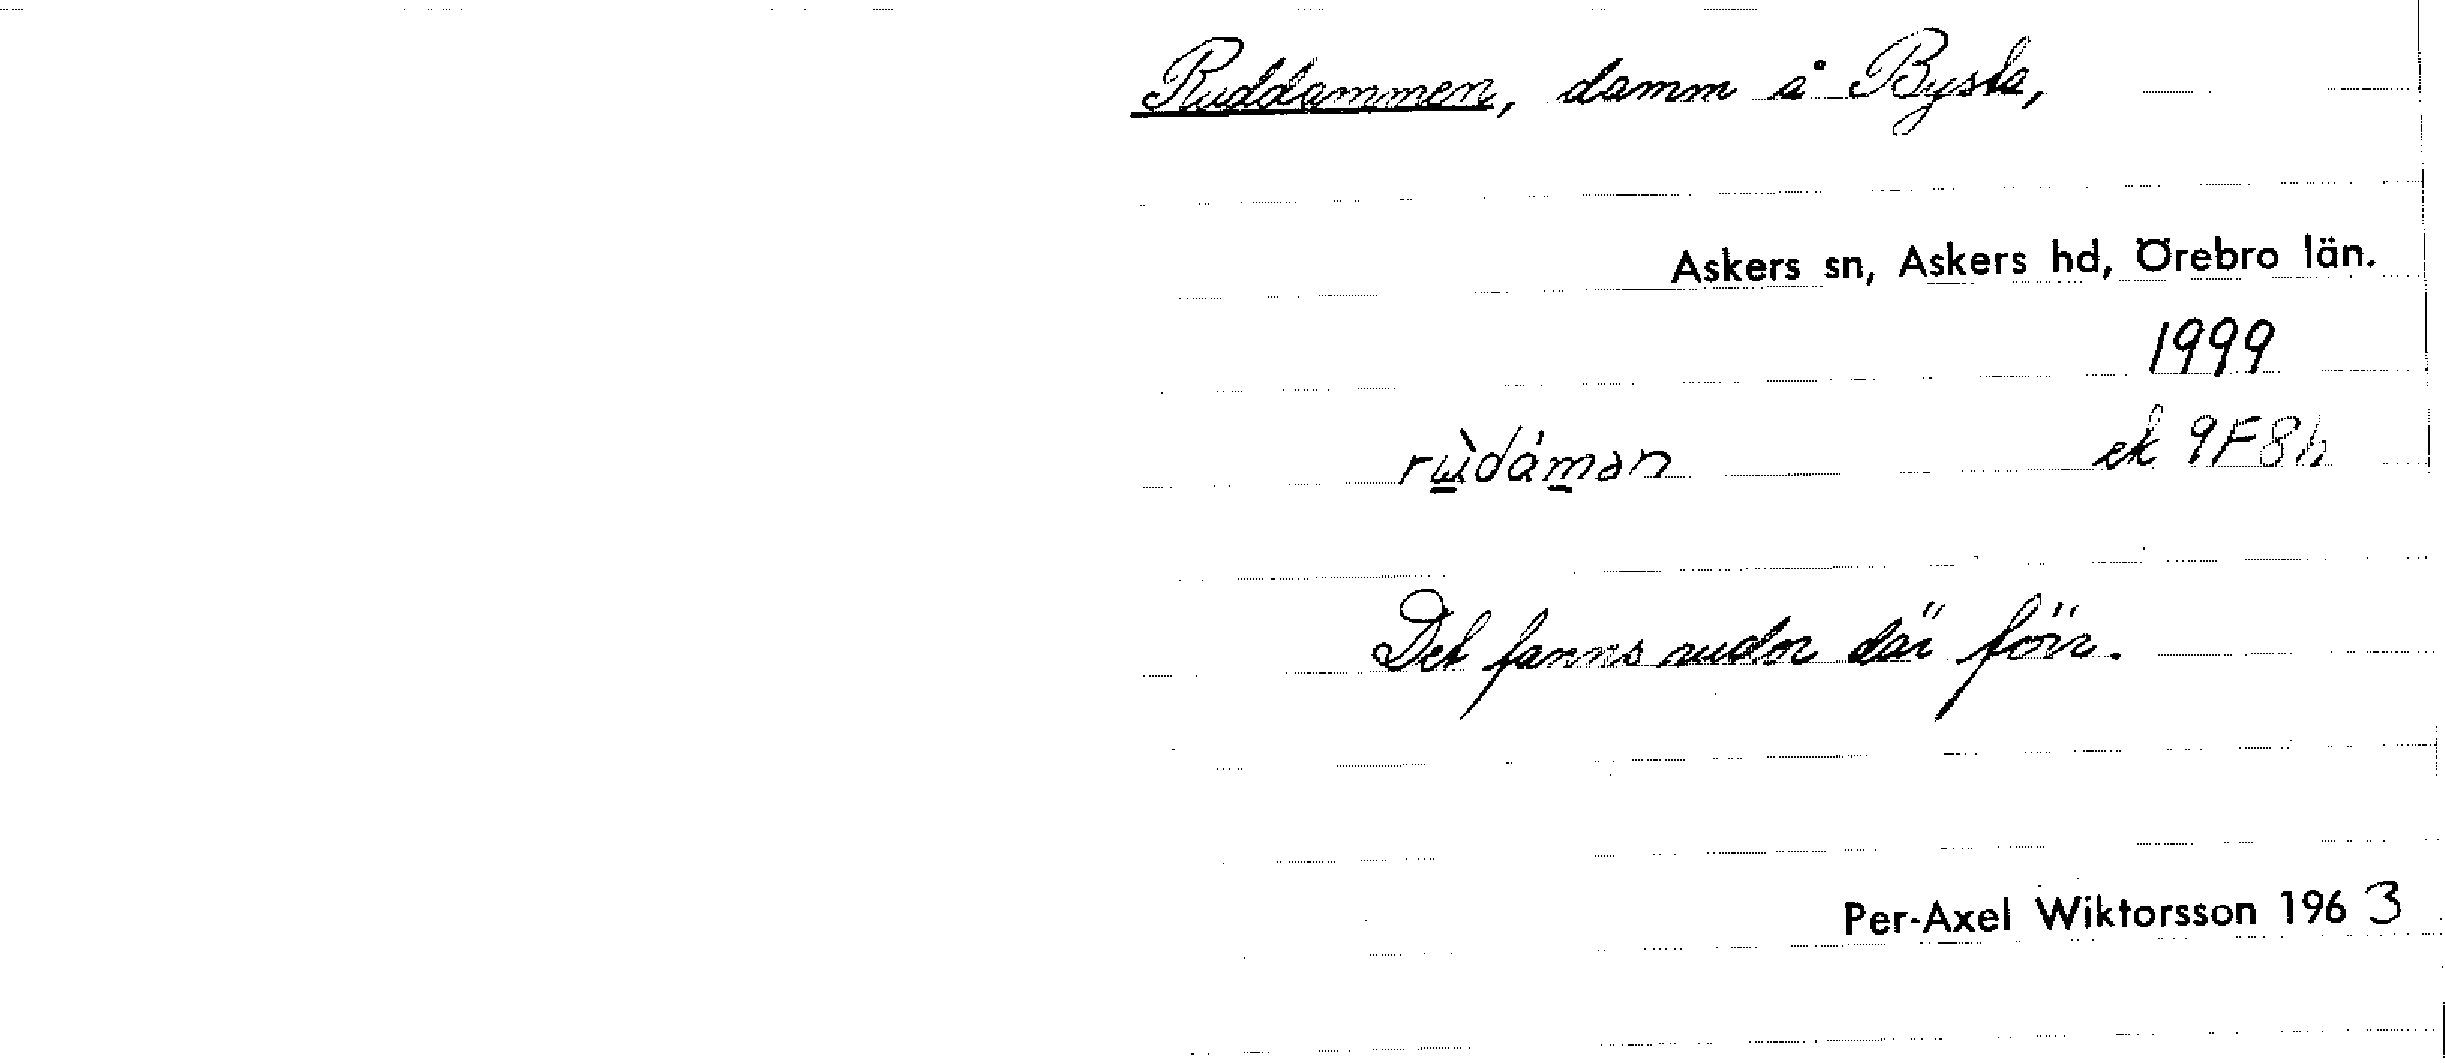 Ruddammen, damm å Bysta,
Askers sn, Askers hd, Örebro län.
1999
rùdámən ek 9F8h
Det fanns rudor där förr.
Per-Axel Wiktorsson 1963